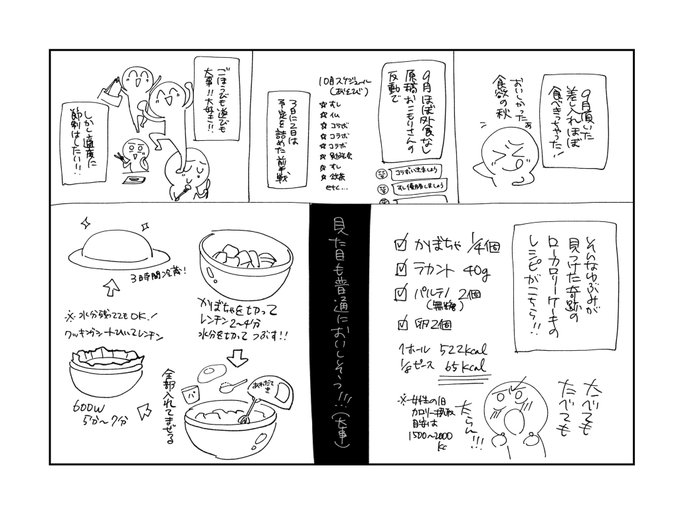 9月頂いた
差し入れほぼ
食べきっちゃった!
おいしかったぁ
食欲の秋
9月ほぼ外食なし
原稿おこもりさんの
反動で
コラボいきましょう
すし優勝しましょう
10月スケジュール
(あそび)
☆すし
☆仏
☆コラボ
☆コラボ
☆コラボ
☆勉強会
☆すし
☆飲茶
etc...
3日に2日は
予定を詰めた前半戦
ごほうびも遊びも
大事!!大好き!!
しかし適度に
節制はしたい!!
そんなゆぶみが
見つけた奇跡の
ローカロリーケーキの
レシピがこちら!!
☑かぼちゃ 1/4個
☑ラカント 40g
☑パルテノ 2個
(無糖)
☑卵2個
1ホール 522kcal
1/8ピース 65kcal
たべても
たべても
たらん!!!
※女性の1日
カロリー摂取
目安は
1500~2000
kc
見た目も普通においしそう!!!(大事)
かぼちゃを切って
レンチン2~4分
水分を切ってつぶす!!
あわだてき
全部入れてまぜる
※水分残っててもOK!
クッキングシートひいてレンチン
600W
5分~7分
3時間冷蔵!